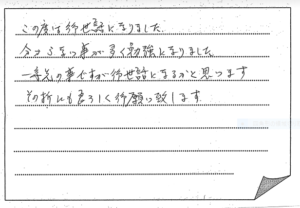 この度は御世話になりました
今コラまつ事が多く勉強になりました
一年先の事ですが御世話になるかと思います
その折にも宜ろしく御願い致します